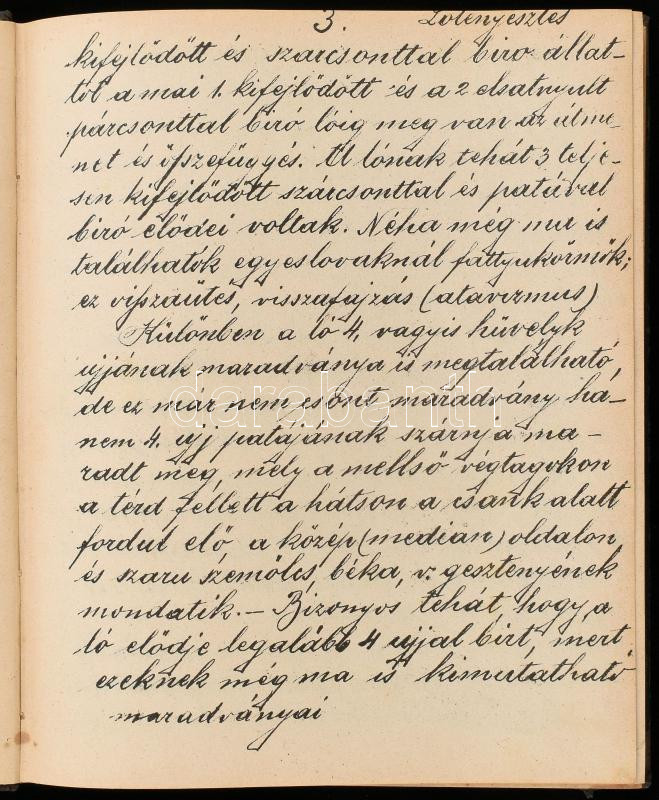 3. Lótenyésztés
kifejlődött és szárcsonttal biro állat-
tól a mai 1. kifejlődött és a 2 elsatnyult
párcsonttal biró lóig meg van az átme-
net és öszefüggés. A lónak tehát 3 telje-
sen kifejlődött szárcsonttal és patával
biró elődei voltak. Néha még ma is
találhatók egyeslovaknál fattyukörmök;
ez viszaütés, visszafajzás (atavizmus)
Különben a ló 4. vagyis hüvelyk
ujjának maradványa is megtalálható,
de ez már nem csont maradvány ha-
nem 4. ujj patájának szárnya ma-
radt meg, mely a mellső végtagokon
a térd fellett a hátson a csank alatt
fordul elő, a közép (median) oldalon,
és szaru szemölcs, béka, v. gesztenyének
mondatik. — Bizonyos tehát, hogy a
ló elődje legalább 4 ujjal birt, mert
ezeknek még ma is kimutatható
maradványai
darabanth